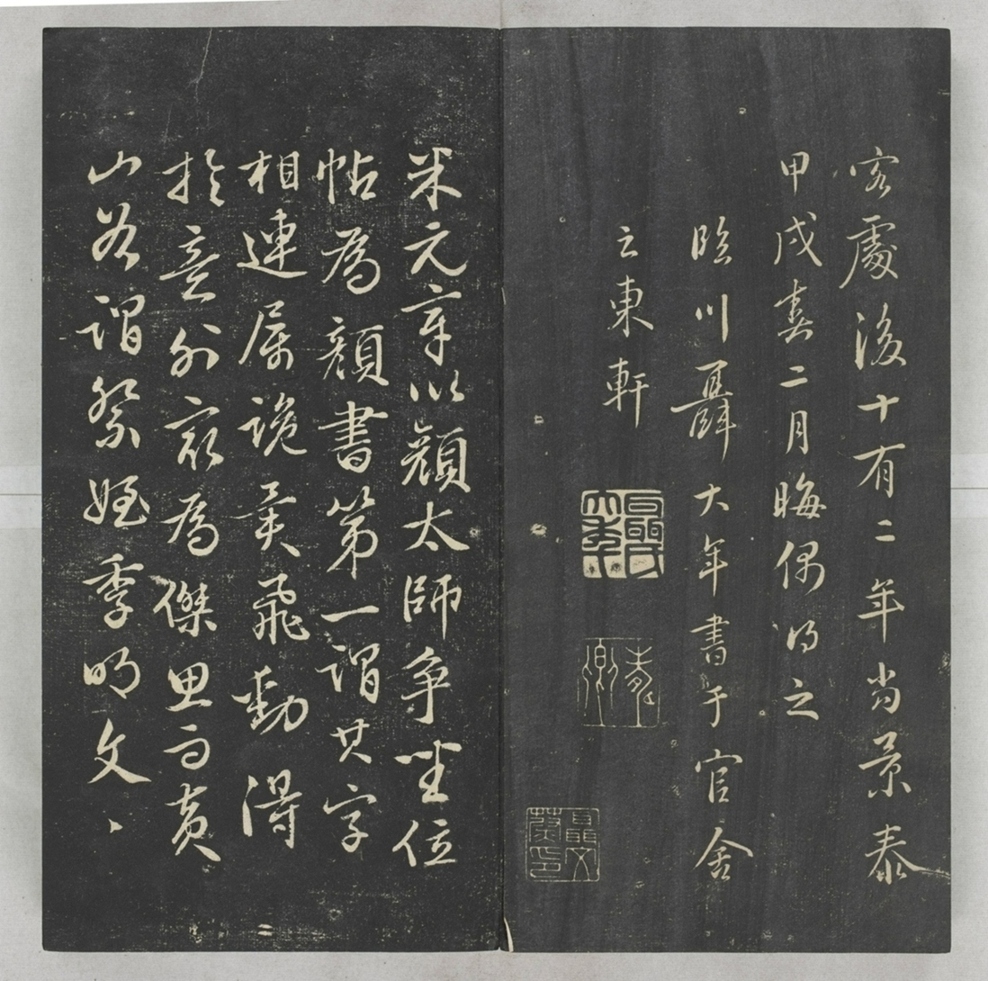 客處後十有二年当景泰
甲戌春二月晦偶得之
臨川聶大年書于官舍
之東軒
米元章以顏太師争坐位
帖為顏書第一謂其字
相連属詭異飛動得
於意外㝡為傑思而黄
山谷謂祭姪季明文、